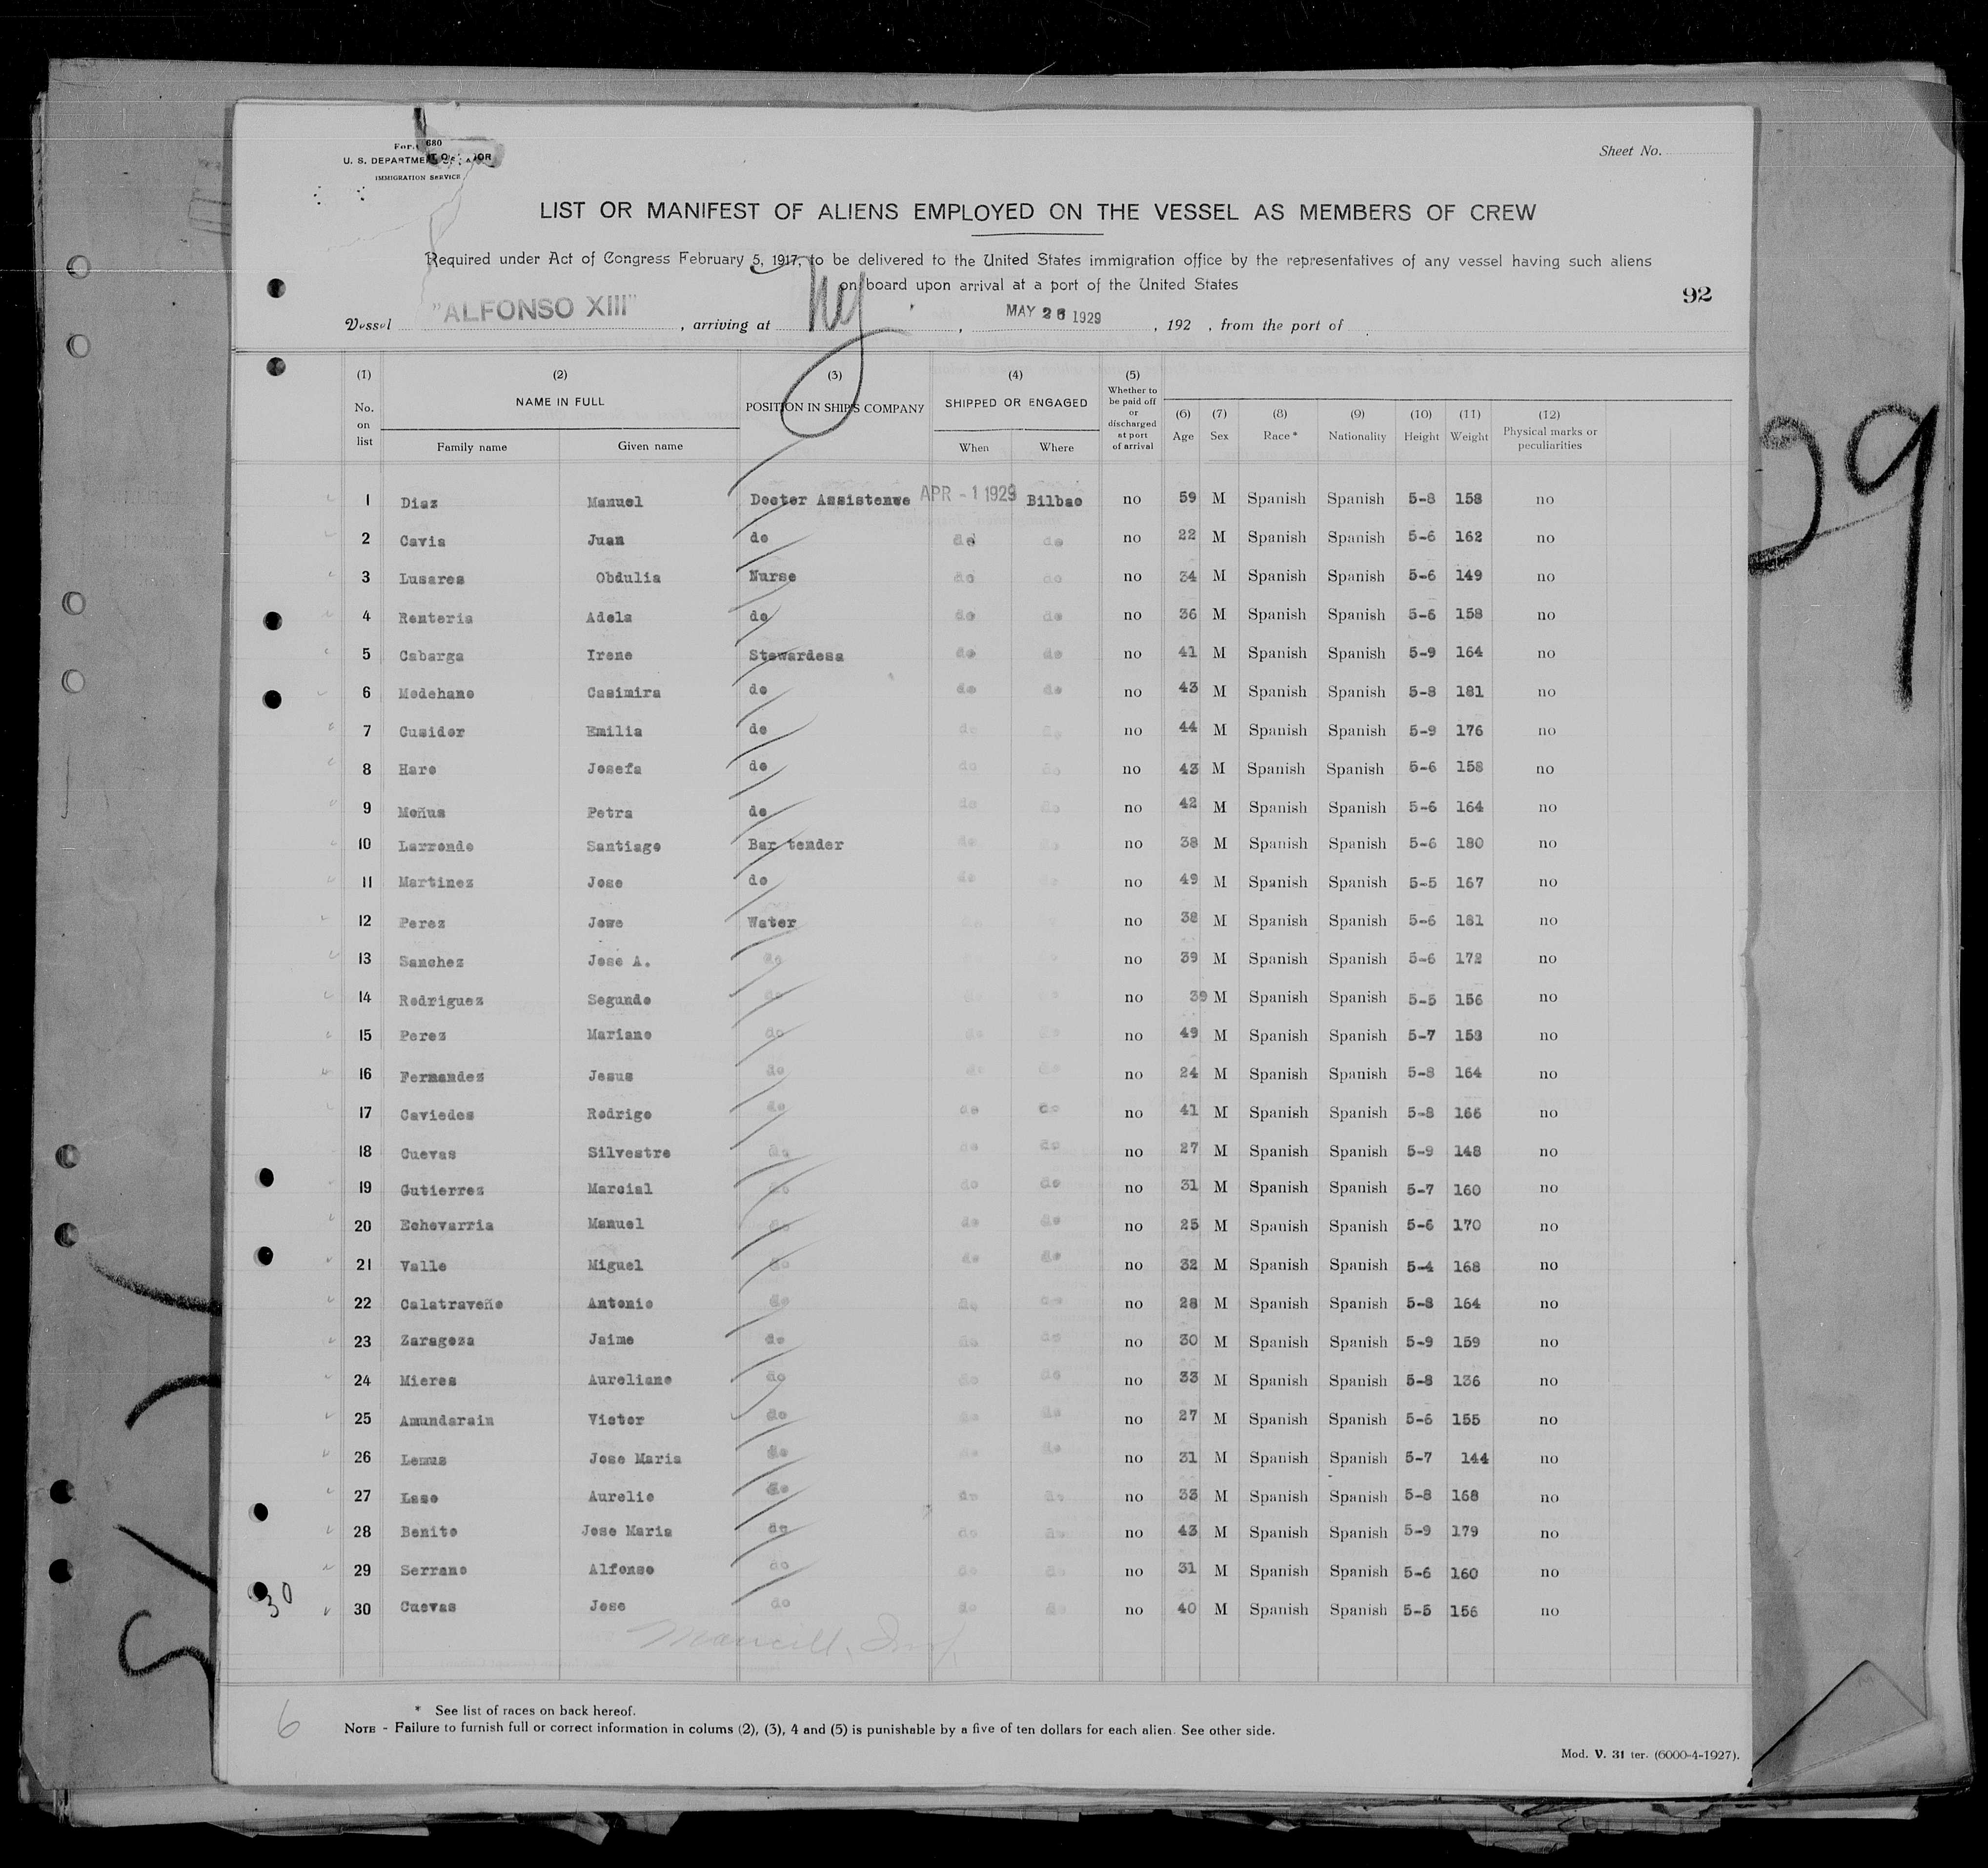 Form 680
U. S. DEPARTMENT OF LABOR
IMMIGRATION SERVICE
Sheet No.
LIST OR MANIFEST OF ALIENS EMPLOYED ON THE VESSEL AS MEMBERS OF CREW
Required under Act of Congress February 5, 1917, to be delivered to the United States immigration office by the representatives of any vessel having such aliens
on board upon arrival at a port of the United States
92
Vessel "ALFONSO XIII", arriving at NY, MAY 26 1929, 192 , from the port of
(1) No. on list (2) NAME IN FULL Family name Given name (3) POSITION IN SHIP'S COMPANY (4) SHIPPED OR ENGAGED When Where (5) Whether to be paid off or discharged at port of arrival (6) Age (7) Sex (8) Race * (9) Nationality (10) Height (11) Weight (12) Physical marks or peculiarities
1 Diaz Manuel Docter Assistenwe APR - 1 1929 Bilbao no 59 M Spanish Spanish 5-8 158 no
2 Cavia Juan do do do no 22 M Spanish Spanish 5-6 162 no
3 Lusares Obdulia Nurse do do no 34 M Spanish Spanish 5-6 149 no
4 Renteria Adela do do do no 36 M Spanish Spanish 5-6 158 no
5 Cabarga Irene Stewardesa do do no 41 M Spanish Spanish 5-9 164 no
6 Modehano Casimira do do do no 43 M Spanish Spanish 5-8 181 no
7 Cusidor Emilia do do do no 44 M Spanish Spanish 5-9 176 no
8 Haro Josefa do do do no 43 M Spanish Spanish 5-6 158 no
9 Moñus Petra do do do no 42 M Spanish Spanish 5-6 164 no
10 Larrondo Santiago Bar tender do do no 38 M Spanish Spanish 5-6 180 no
11 Martinez Jose do do do no 49 M Spanish Spanish 5-5 167 no
12 Perez Jowe Water no 38 M Spanish Spanish 5-6 181 no
13 Sanchez Jose A. do no 39 M Spanish Spanish 5-6 172 no
14 Rodriguez Segundo do do do no 39 M Spanish Spanish 5-5 156 no
15 Perez Mariano do do do no 49 M Spanish Spanish 5-7 158 no
16 Fernandez Jesus do do do no 24 M Spanish Spanish 5-8 164 no
17 Caviedes Rodrigo do do do no 41 M Spanish Spanish 5-8 166 no
18 Cuevas Silvestre do do do no 27 M Spanish Spanish 5-9 148 no
19 Gutierrez Marcial do do do no 31 M Spanish Spanish 5-7 160 no
20 Echevarria Manuel do do do no 25 M Spanish Spanish 5-6 170 no
21 Valle Miguel do do do no 32 M Spanish Spanish 5-4 168 no
22 Calatraveño Antonio do do do no 28 M Spanish Spanish 5-8 164 no
23 Zaragoza Jaime do do do no 30 M Spanish Spanish 5-9 159 no
24 Mieres Aureliano do do do no 33 M Spanish Spanish 5-8 136 no
25 Amundarain Victor do do do no 27 M Spanish Spanish 5-6 155 no
26 Lemus Jose Maria do do do no 31 M Spanish Spanish 5-7 144 no
27 Laso Aurelio do do do no 33 M Spanish Spanish 5-8 168 no
28 Benito Jose Maria do do do no 43 M Spanish Spanish 5-9 179 no
29 Serrano Alfonso do do do no 31 M Spanish Spanish 5-6 160 no
30 Cuevas Jose do do do no 40 M Spanish Spanish 5-5 156 no
30
6
* See list of races on back hereof.
NOTE - Failure to furnish full or correct information in colums (2), (3), 4 and (5) is punishable by a five of ten dollars for each alien. See other side.
Mod. V. 31 ter. (6000-4-1927).